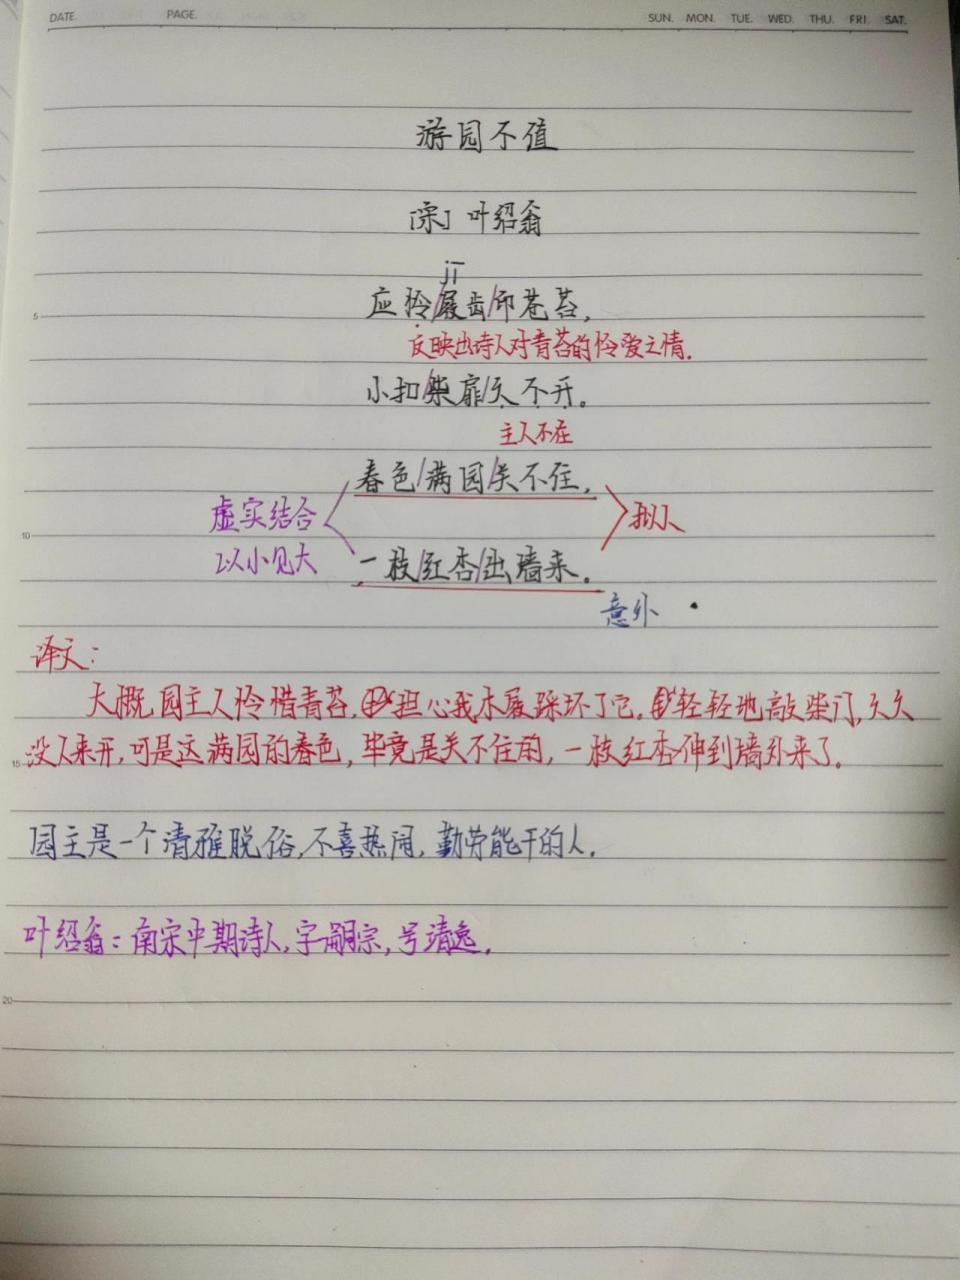 DATE. PAGE. SUN. MON. TUE. WED. THU. FRI. SAT.
游园不值
[宋] 叶绍翁
jī
应怜/屐齿/印苍苔,
5
反映出诗人对青苔的怜爱之情.
小扣/柴扉/久不开。
主人不在
春色/满园/关不住,
虚实结合
拟人
10
以小见大
一枝/红杏/出墙来.
意外
译文:
大概园主人怜惜青苔,担心我木屐踩坏了它,轻轻地敲柴门,久久
15
没人来开,可是这满园的春色,毕竟是关不住的,一枝红杏伸到墙外来了.
园主是一个清雅脱俗,不喜热闹,勤劳能干的人.
叶绍翁:南宋中期诗人,字嗣宗,号靖逸.
20